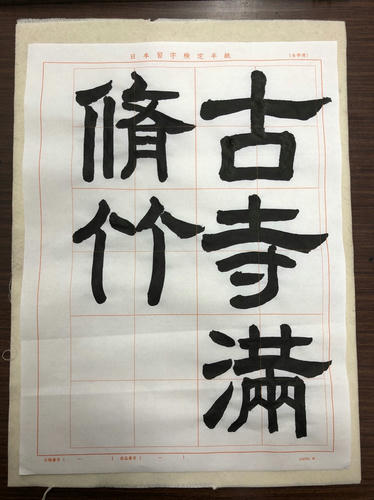 日本習字検定半紙
古寺満
脩竹